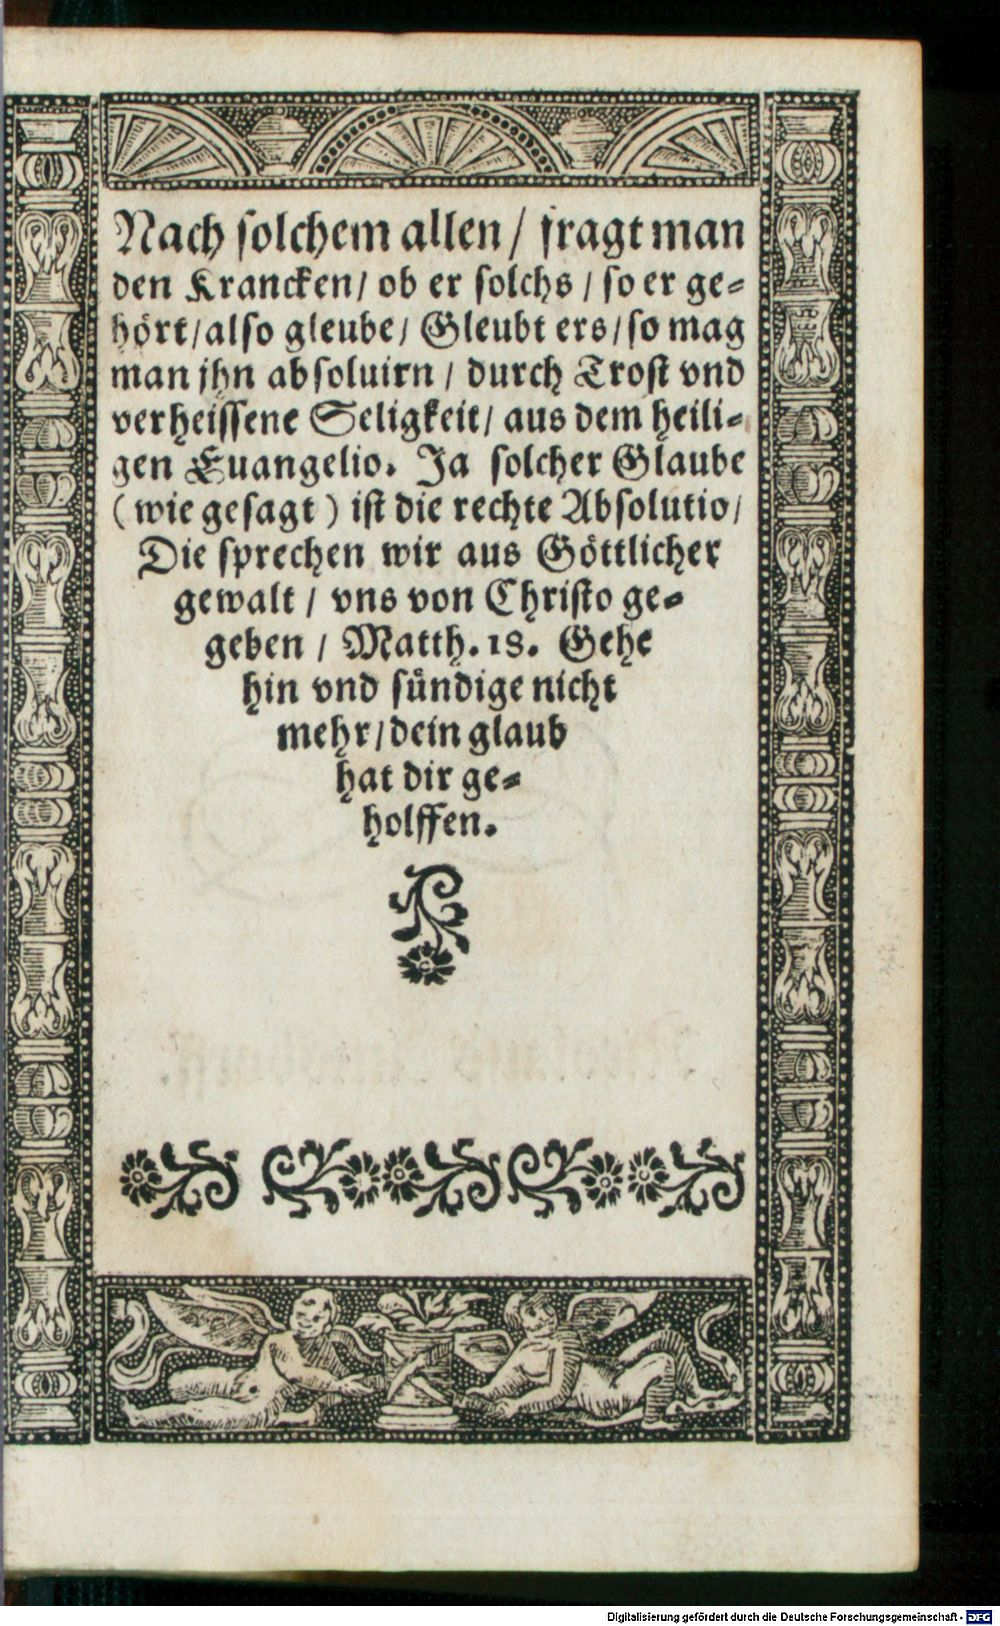 Nach solchem allen / fragt man
den Krancken / ob er solchs / so er ge-
hört / also gleube / Gleubt ers / so mag
man jhn absoluirn / durch Trost vnd
verheissene Seligkeit / aus dem heili-
gen Euangelio. Ja solcher Glaube
(wie gesagt) ist die rechte Absolutio /
Die sprechen wir aus Göttlicher
gewalt / vns von Christo ge-
geben / Matth. 18. Gehe
hin vnd sündige nicht
mehr / dein glaub
hat dir ge-
holffen.
Digitalisierung gefördert durch die Deutsche Forschungsgemeinschaft - DFG